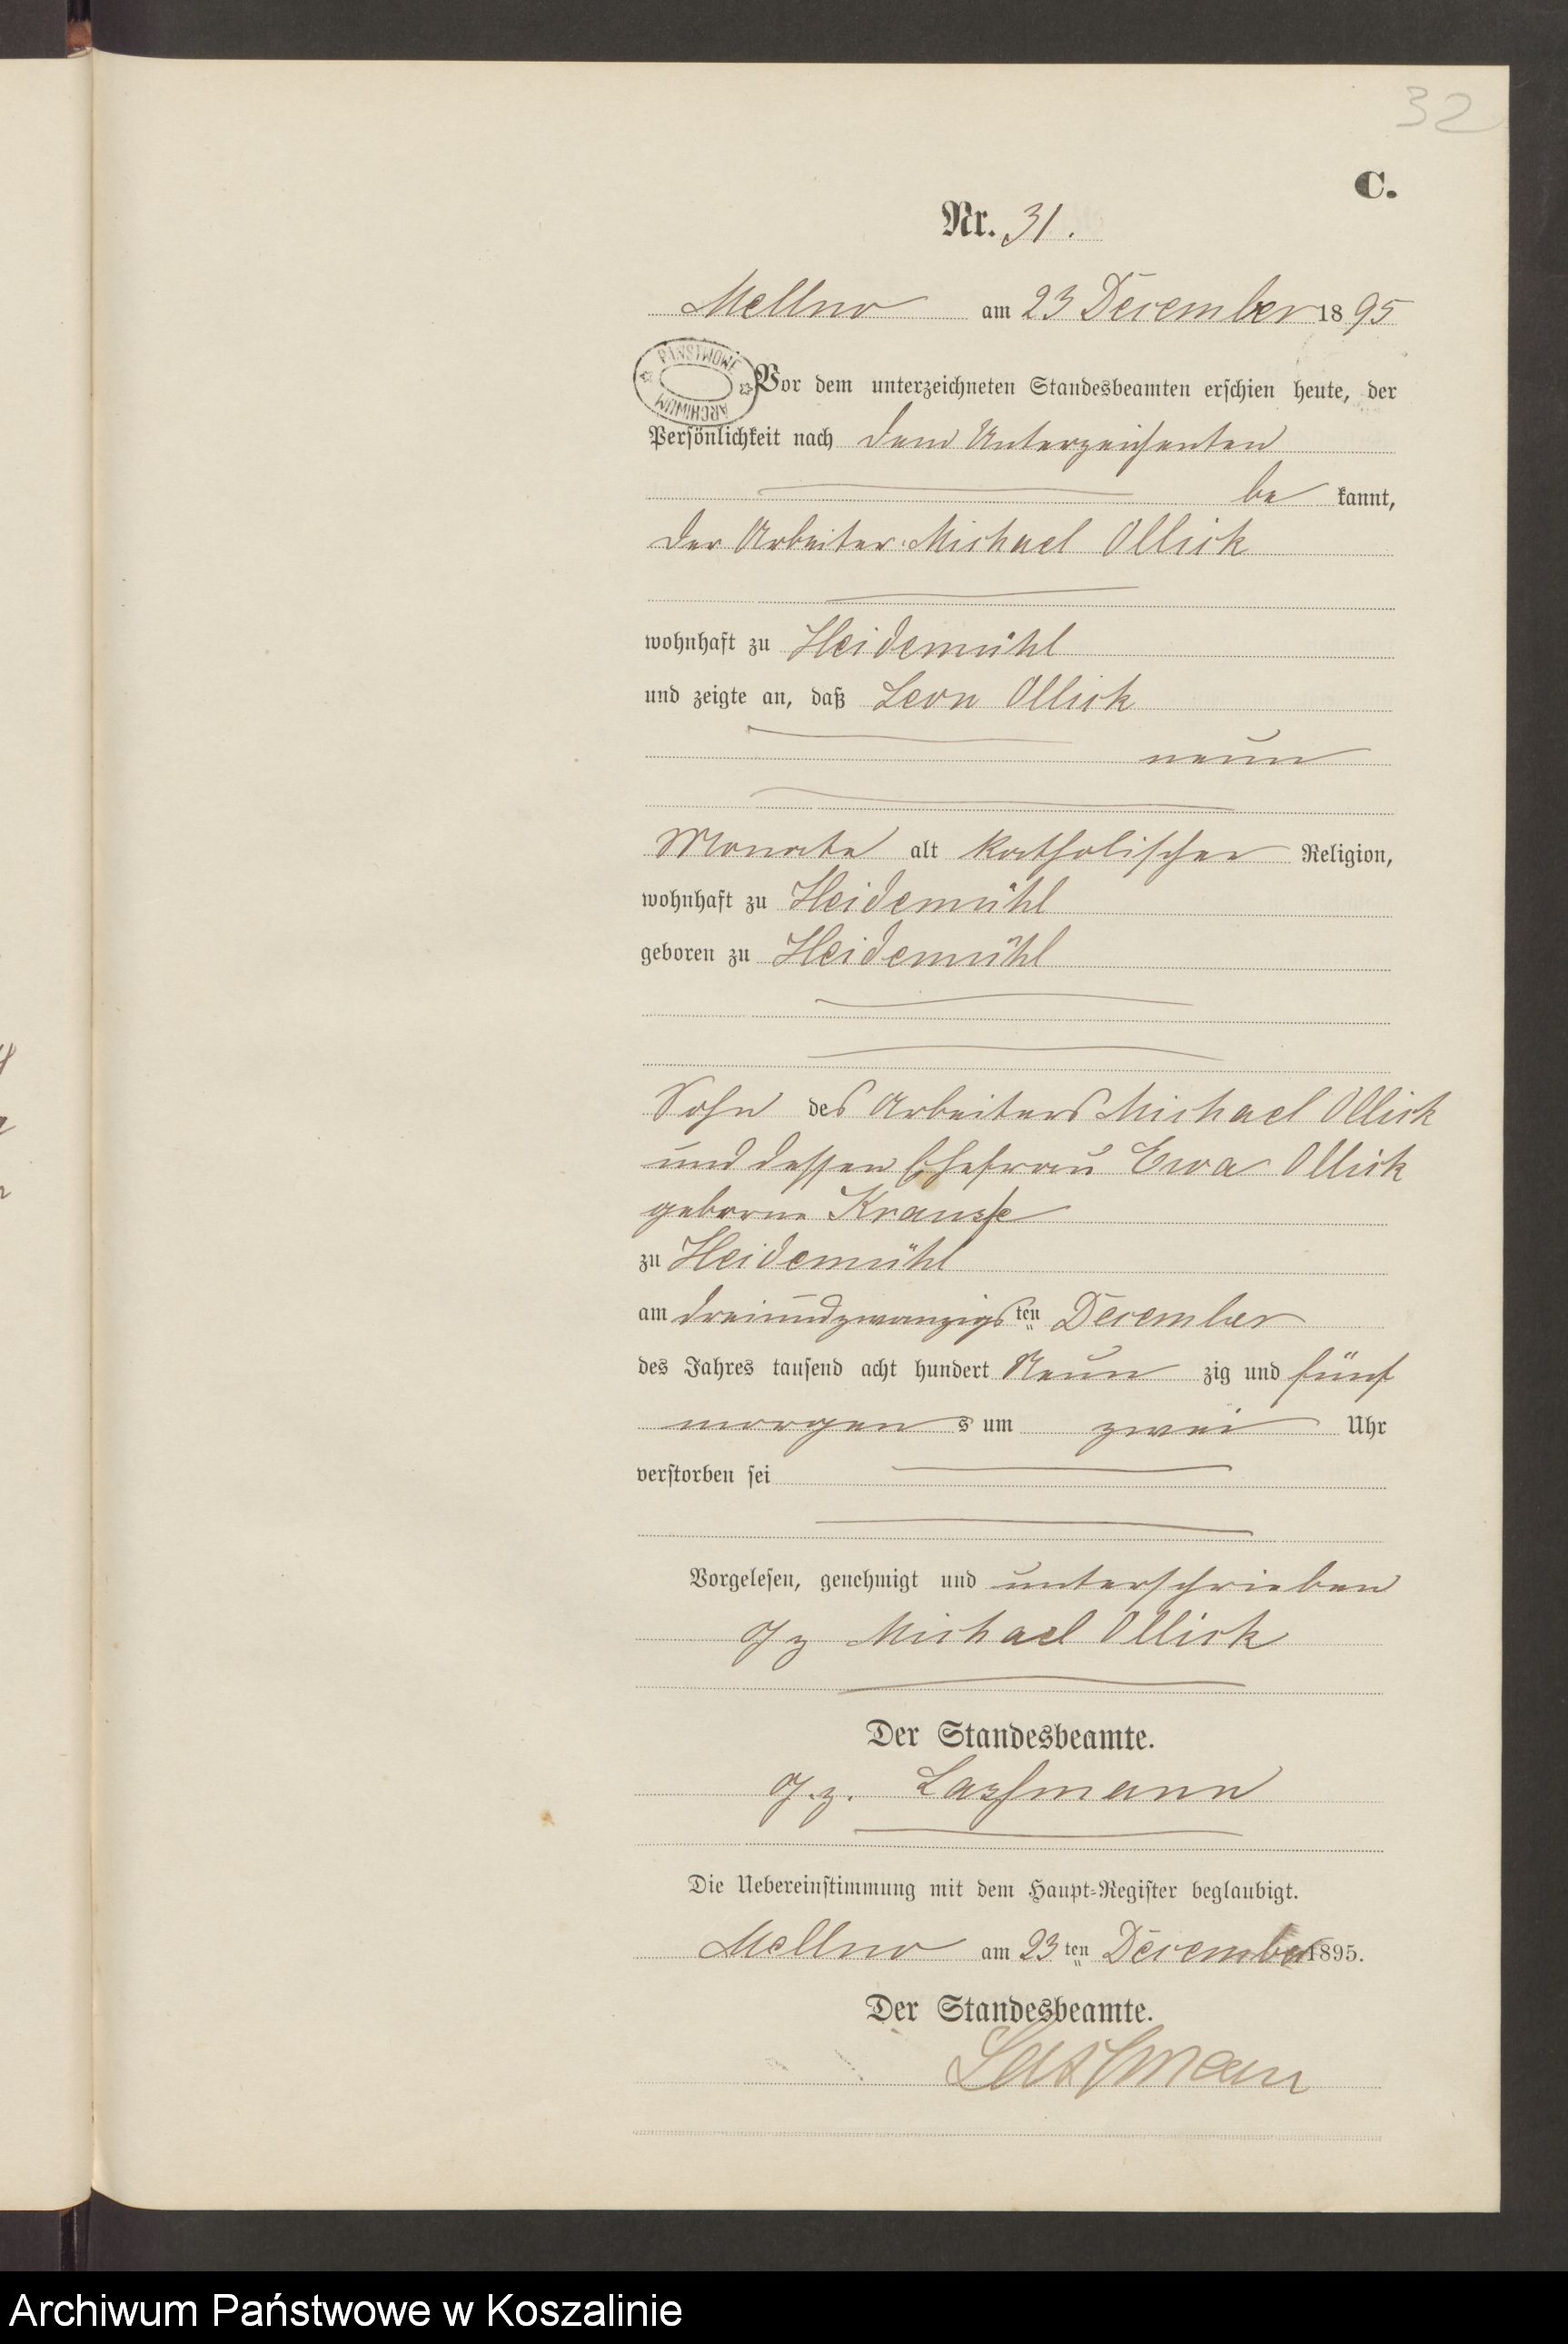 32
C.
Nr. 31.
Mellno am 23 December 1895
PAŃSTWOWE ARCHIWUM
Vor dem unterzeichneten Standesbeamten erschien heute, der
Persönlichkeit nach dem Unterzeichenten
be kannt,
der Arbeiter Michael Ollick
wohnhaft zu Heidemühl
und zeigte an, daß Leon Ollick
neun
Monate alt katholischer Religion,
wohnhaft zu Heidemühl
geboren zu Heidemühl
Sohn des Arbeiters Michael Ollick
und dessen Ehefrau Ewa Ollick
geborne Krause
zu Heidemühl
am dreiundzwanzigsten December
des Jahres tausend acht hundert Neun zig und fünf
morgen s um zwei Uhr
verstorben sei
Vorgelesen, genehmigt und unterschrieben
gz Michael Ollick
Der Standesbeamte.
g.z.
Die Uebereinstimmung mit dem Haupt-Register beglaubigt.
Mellno am 23ten December 1895.
Der Standesbeamte.
Archiwum Państwowe w Koszalinie